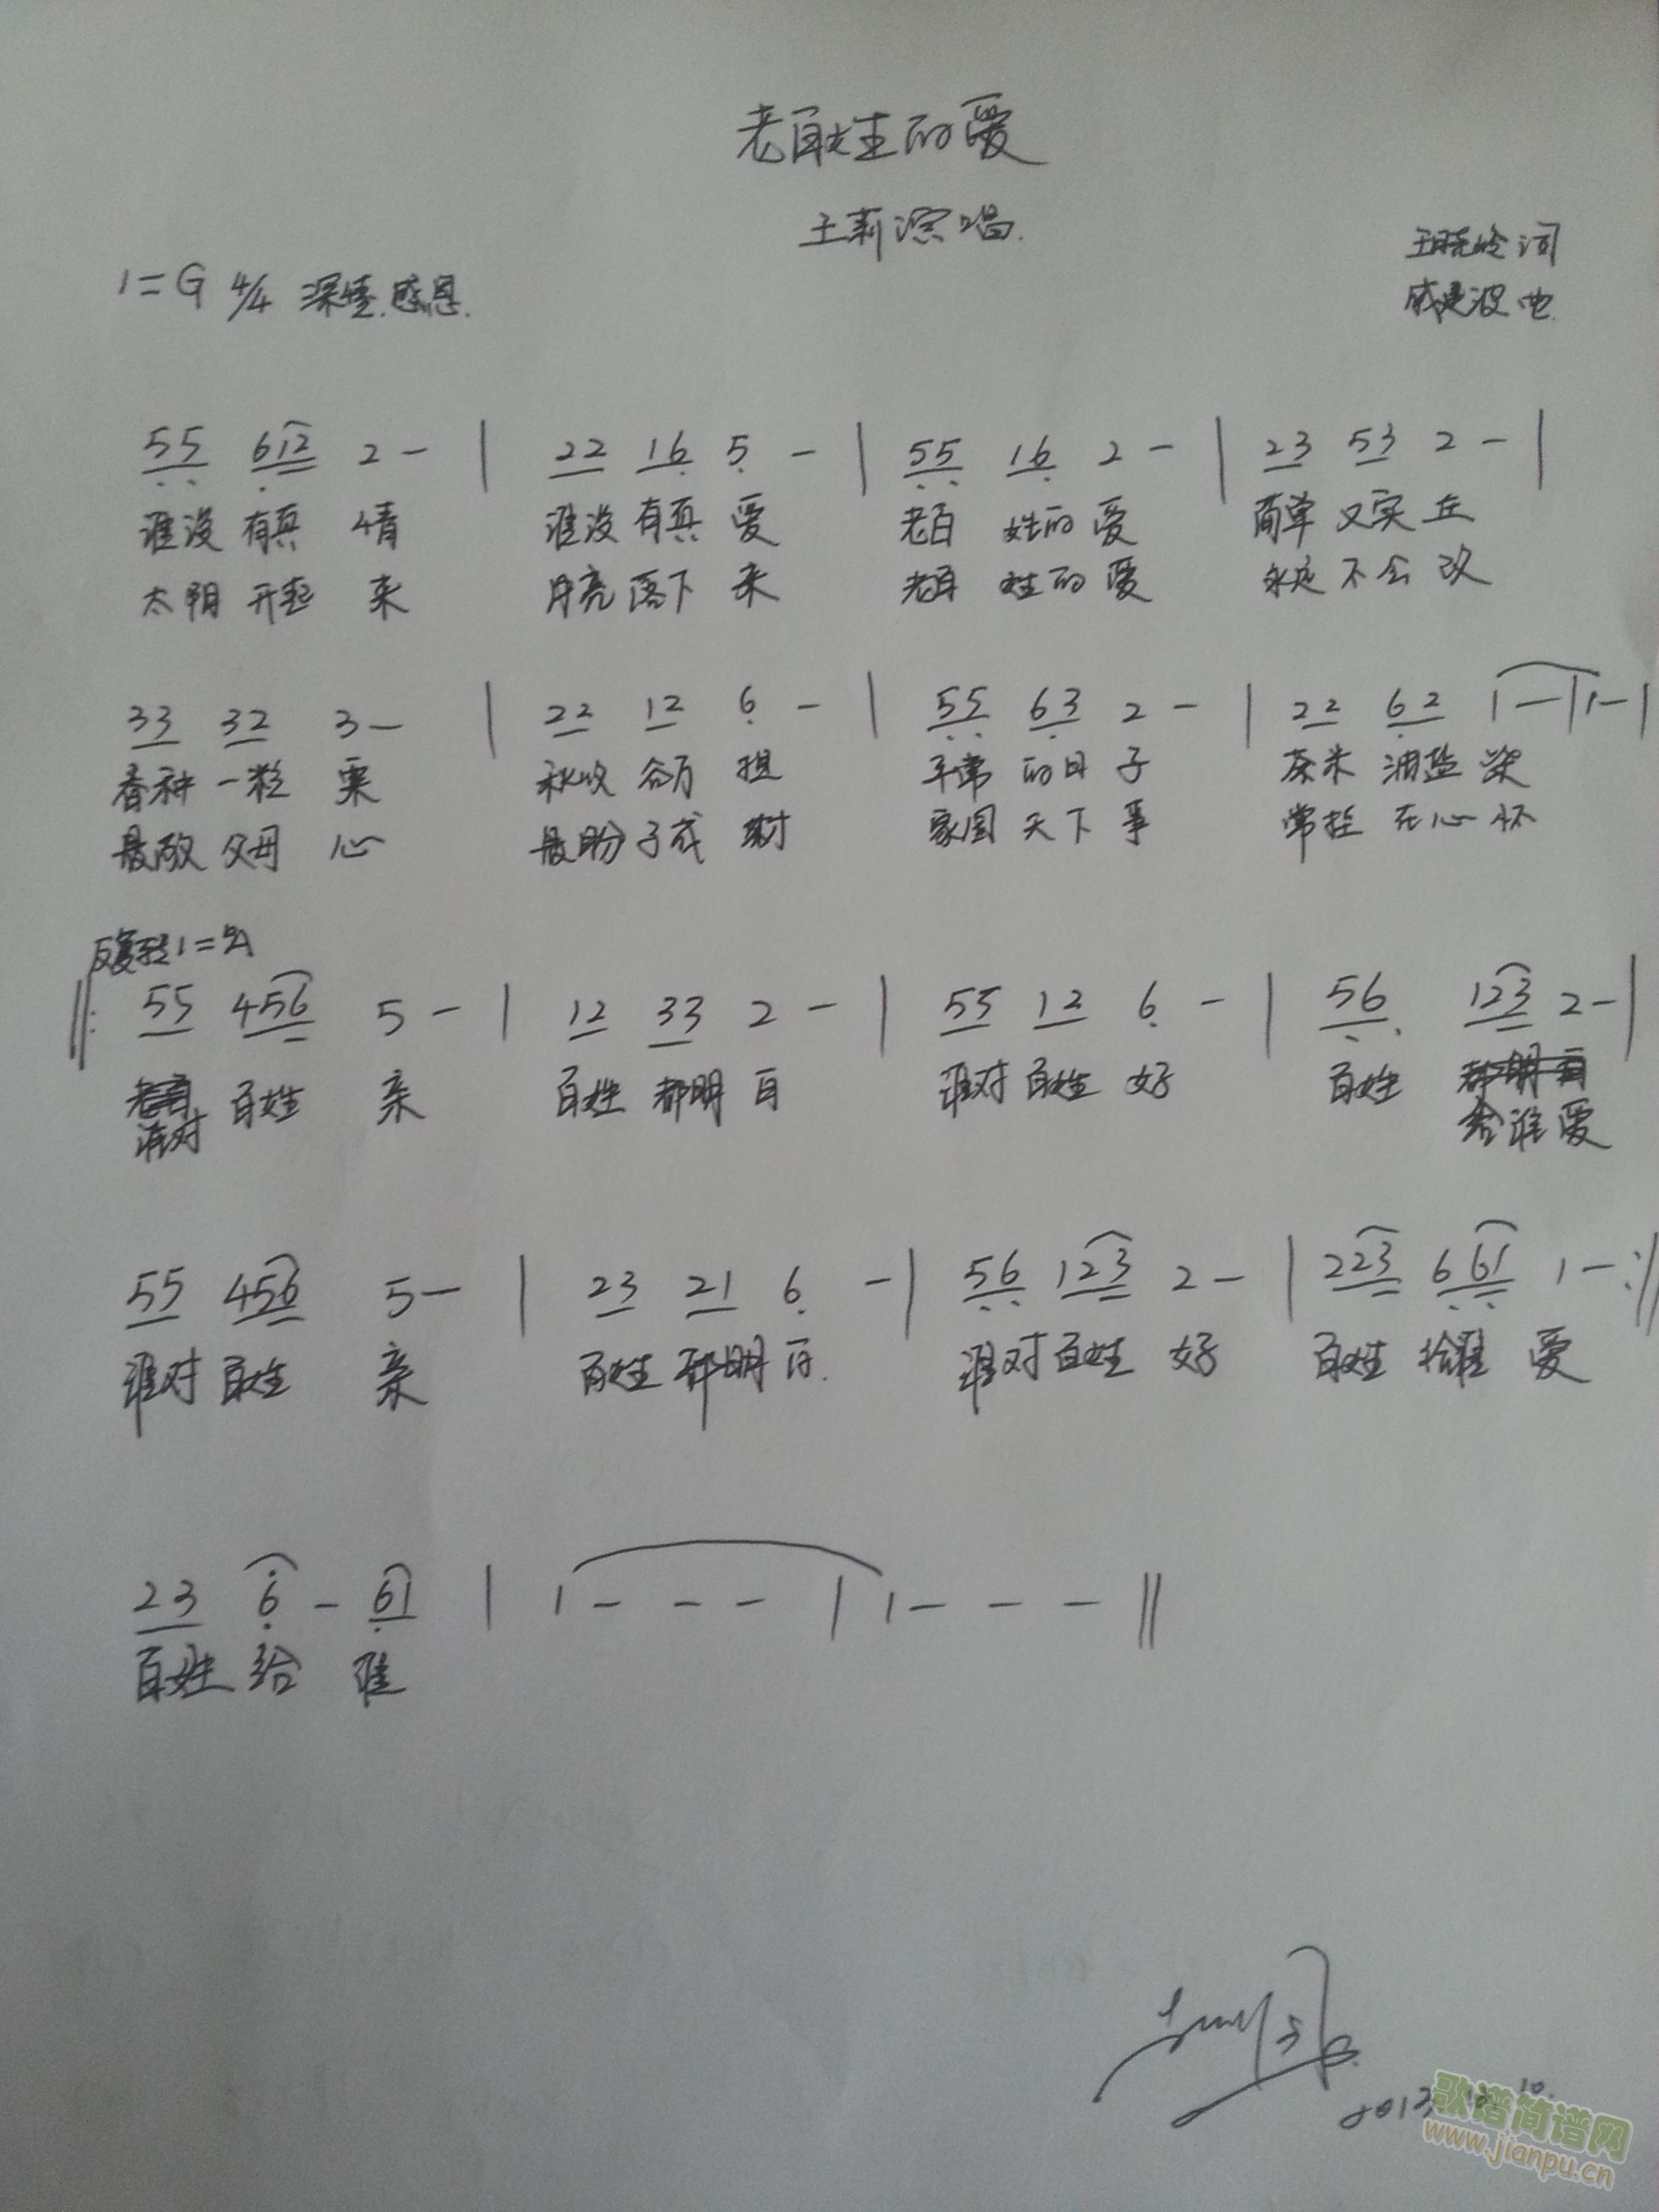 老百姓的爱
王莉演唱.
王晓岭 词
戚建波 曲
1=G 4/4 深情.感恩.
55 612 2 - | 22 16 5 - | 55 16 2 - | 23 53 2 - |
谁没 有真 情 谁没 有真 爱 老百 姓的 爱 简单 又实 在
太阳 升起 来 月亮 落下 来 老百 姓的 爱 永远 不会 改
33 32 3 - | 22 12 6 - | 55 63 2 - | 22 62 1 - | 1 - |
春种 一粒 粟 秋收 谷万 担 平常 的日 子 茶米 油盐 柴
最敬 父母 心 最盼 子成 材 家国 天下 事 常挂 在心 怀
反复转1=♭A
‖: 55 456 5 - | 12 33 2 - | 55 12 6 - | 56 123 2 - |
百姓 亲 百姓 都明 白 谁对 百姓 好 百姓
谁对 给谁爱
55 456 5 - | 23 21 6 - | 56 123 2 - | 223 661 1 - :‖
谁对 百姓 亲 百姓 都明 白. 谁对 百姓 好 百姓 给谁 爱
23 6 - 61 | 1 - - - | 1 - - - ‖
百姓 给 谁
2013
10.
歌谱简谱网
www.jianpu.cn